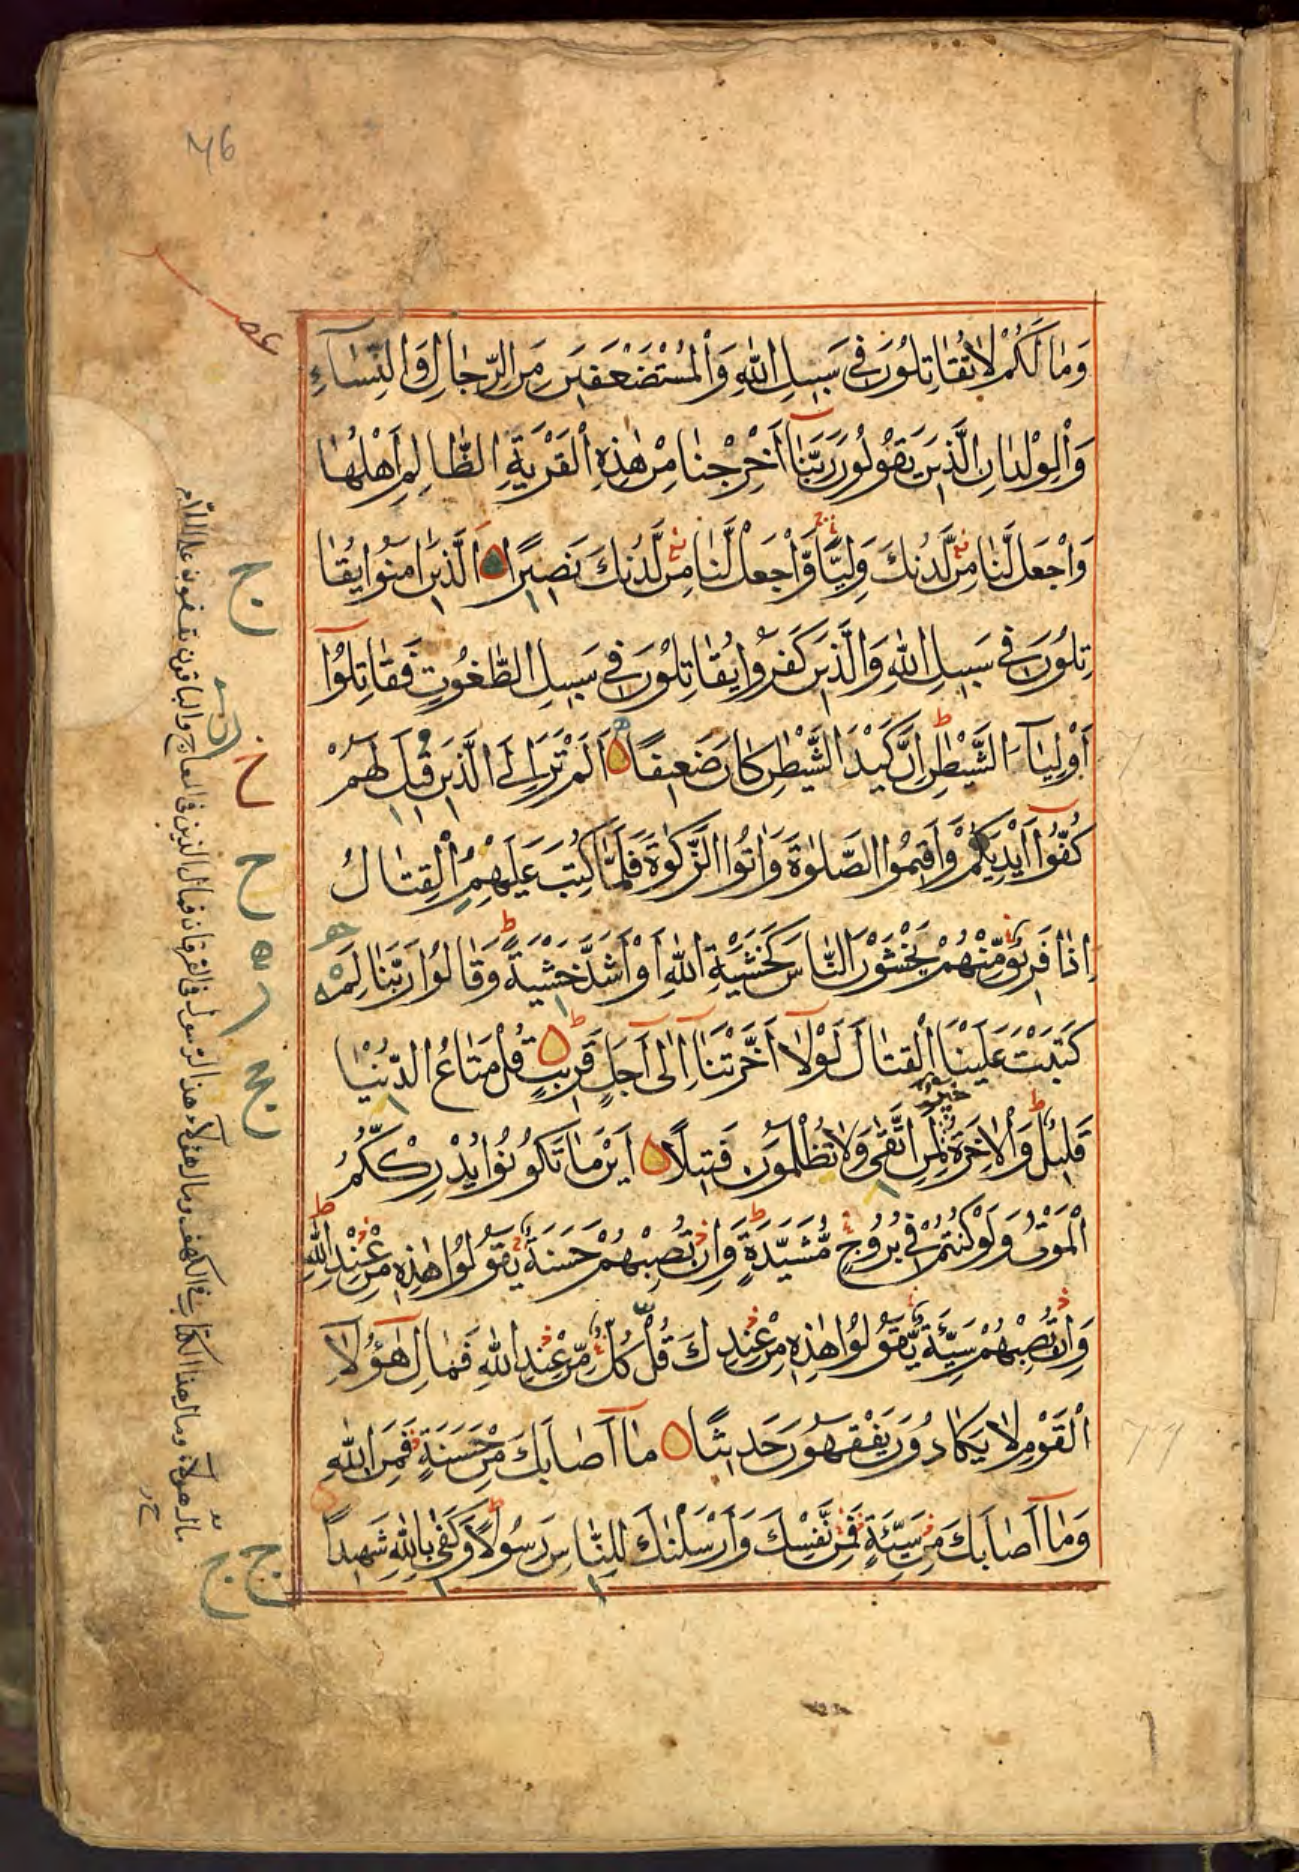 ٧٦
عشر
وَمَا لَكُمْ لَا تُقَاتِلُونَ فِي سَبِيلِ اللَّهِ وَالْمُسْتَضْعَفِينَ مِنَ الرِّجَالِ وَالنِّسَاءِ
وَالْوِلْدَانِ الَّذِينَ يَقُولُونَ رَبَّنَا أَخْرِجْنَا مِنْ هٰذِهِ الْقَرْيَةِ الظَّالِمِ أَهْلُهَا
وَاجْعَلْ لَّنَا مِنْ لَّدُنْكَ وَلِيًّا وَّاجْعَلْ لَّنَا مِنْ لَّدُنْكَ نَصِيرًا الَّذِينَ اٰمَنُوا يُقَا
تِلُونَ فِي سَبِيلِ اللَّهِ وَالَّذِينَ كَفَرُوا يُقَاتِلُونَ فِي سَبِيلِ الطَّغُوتِ فَقَاتِلُوا
أَوْلِيَاءَ الشَّيْطٰنِ إِنَّ كَيْدَ الشَّيْطٰنِ كَانَ ضَعِيفًا أَلَمْ تَرَ إِلَى الَّذِينَ قِيلَ لَهُمْ
كُفُّوا أَيْدِيَكُمْ وَأَقِيمُوا الصَّلٰوةَ وَاٰتُوا الزَّكٰوةَ فَلَمَّا كُتِبَ عَلَيْهِمُ الْقِتَالُ
إِذَا فَرِيقٌ مِّنْهُمْ يَخْشَوْنَ النَّاسَ كَخَشْيَةِ اللَّهِ أَوْ أَشَدَّ خَشْيَةً وَقَالُوا رَبَّنَا لِمَ
كَتَبْتَ عَلَيْنَا الْقِتَالَ لَوْلَا أَخَّرْتَنَا إِلٰى أَجَلٍ قَرِيبٍ قُلْ مَتَاعُ الدُّنْيَا
قَلِيلٌ وَالْاٰخِرَةُ خَيْرٌ لِّمَنِ اتَّقٰى وَلَا تُظْلَمُونَ فَتِيلًا أَيْنَ مَا تَكُونُوا يُدْرِكْكُّمُ
الْمَوْتُ وَلَوْ كُنْتُمْ فِي بُرُوجٍ مُّشَيَّدَةٍ وَإِنْ تُصِبْهُمْ حَسَنَةٌ يَّقُولُوا هٰذِهِ مِنْ عِنْدِ اللَّهِ
وَإِنْ تُصِبْهُمْ سَيِّئَةٌ يَّقُولُوا هٰذِهِ مِنْ عِنْدِكَ قُلْ كُلٌّ مِّنْ عِنْدِ اللَّهِ فَمَالِ هٰؤُلَاءِ
الْقَوْمِ لَا يَكَادُونَ يَفْقَهُونَ حَدِيثًا مَا أَصَابَكَ مِنْ حَسَنَةٍ فَمِنَ اللَّهِ
وَمَا أَصَابَكَ مِنْ سَيِّئَةٍ فَمِنْ نَّفْسِكَ وَأَرْسَلْنٰكَ لِلنَّاسِ رَسُولًا وَكَفٰى بِاللَّهِ شَهِيدًا